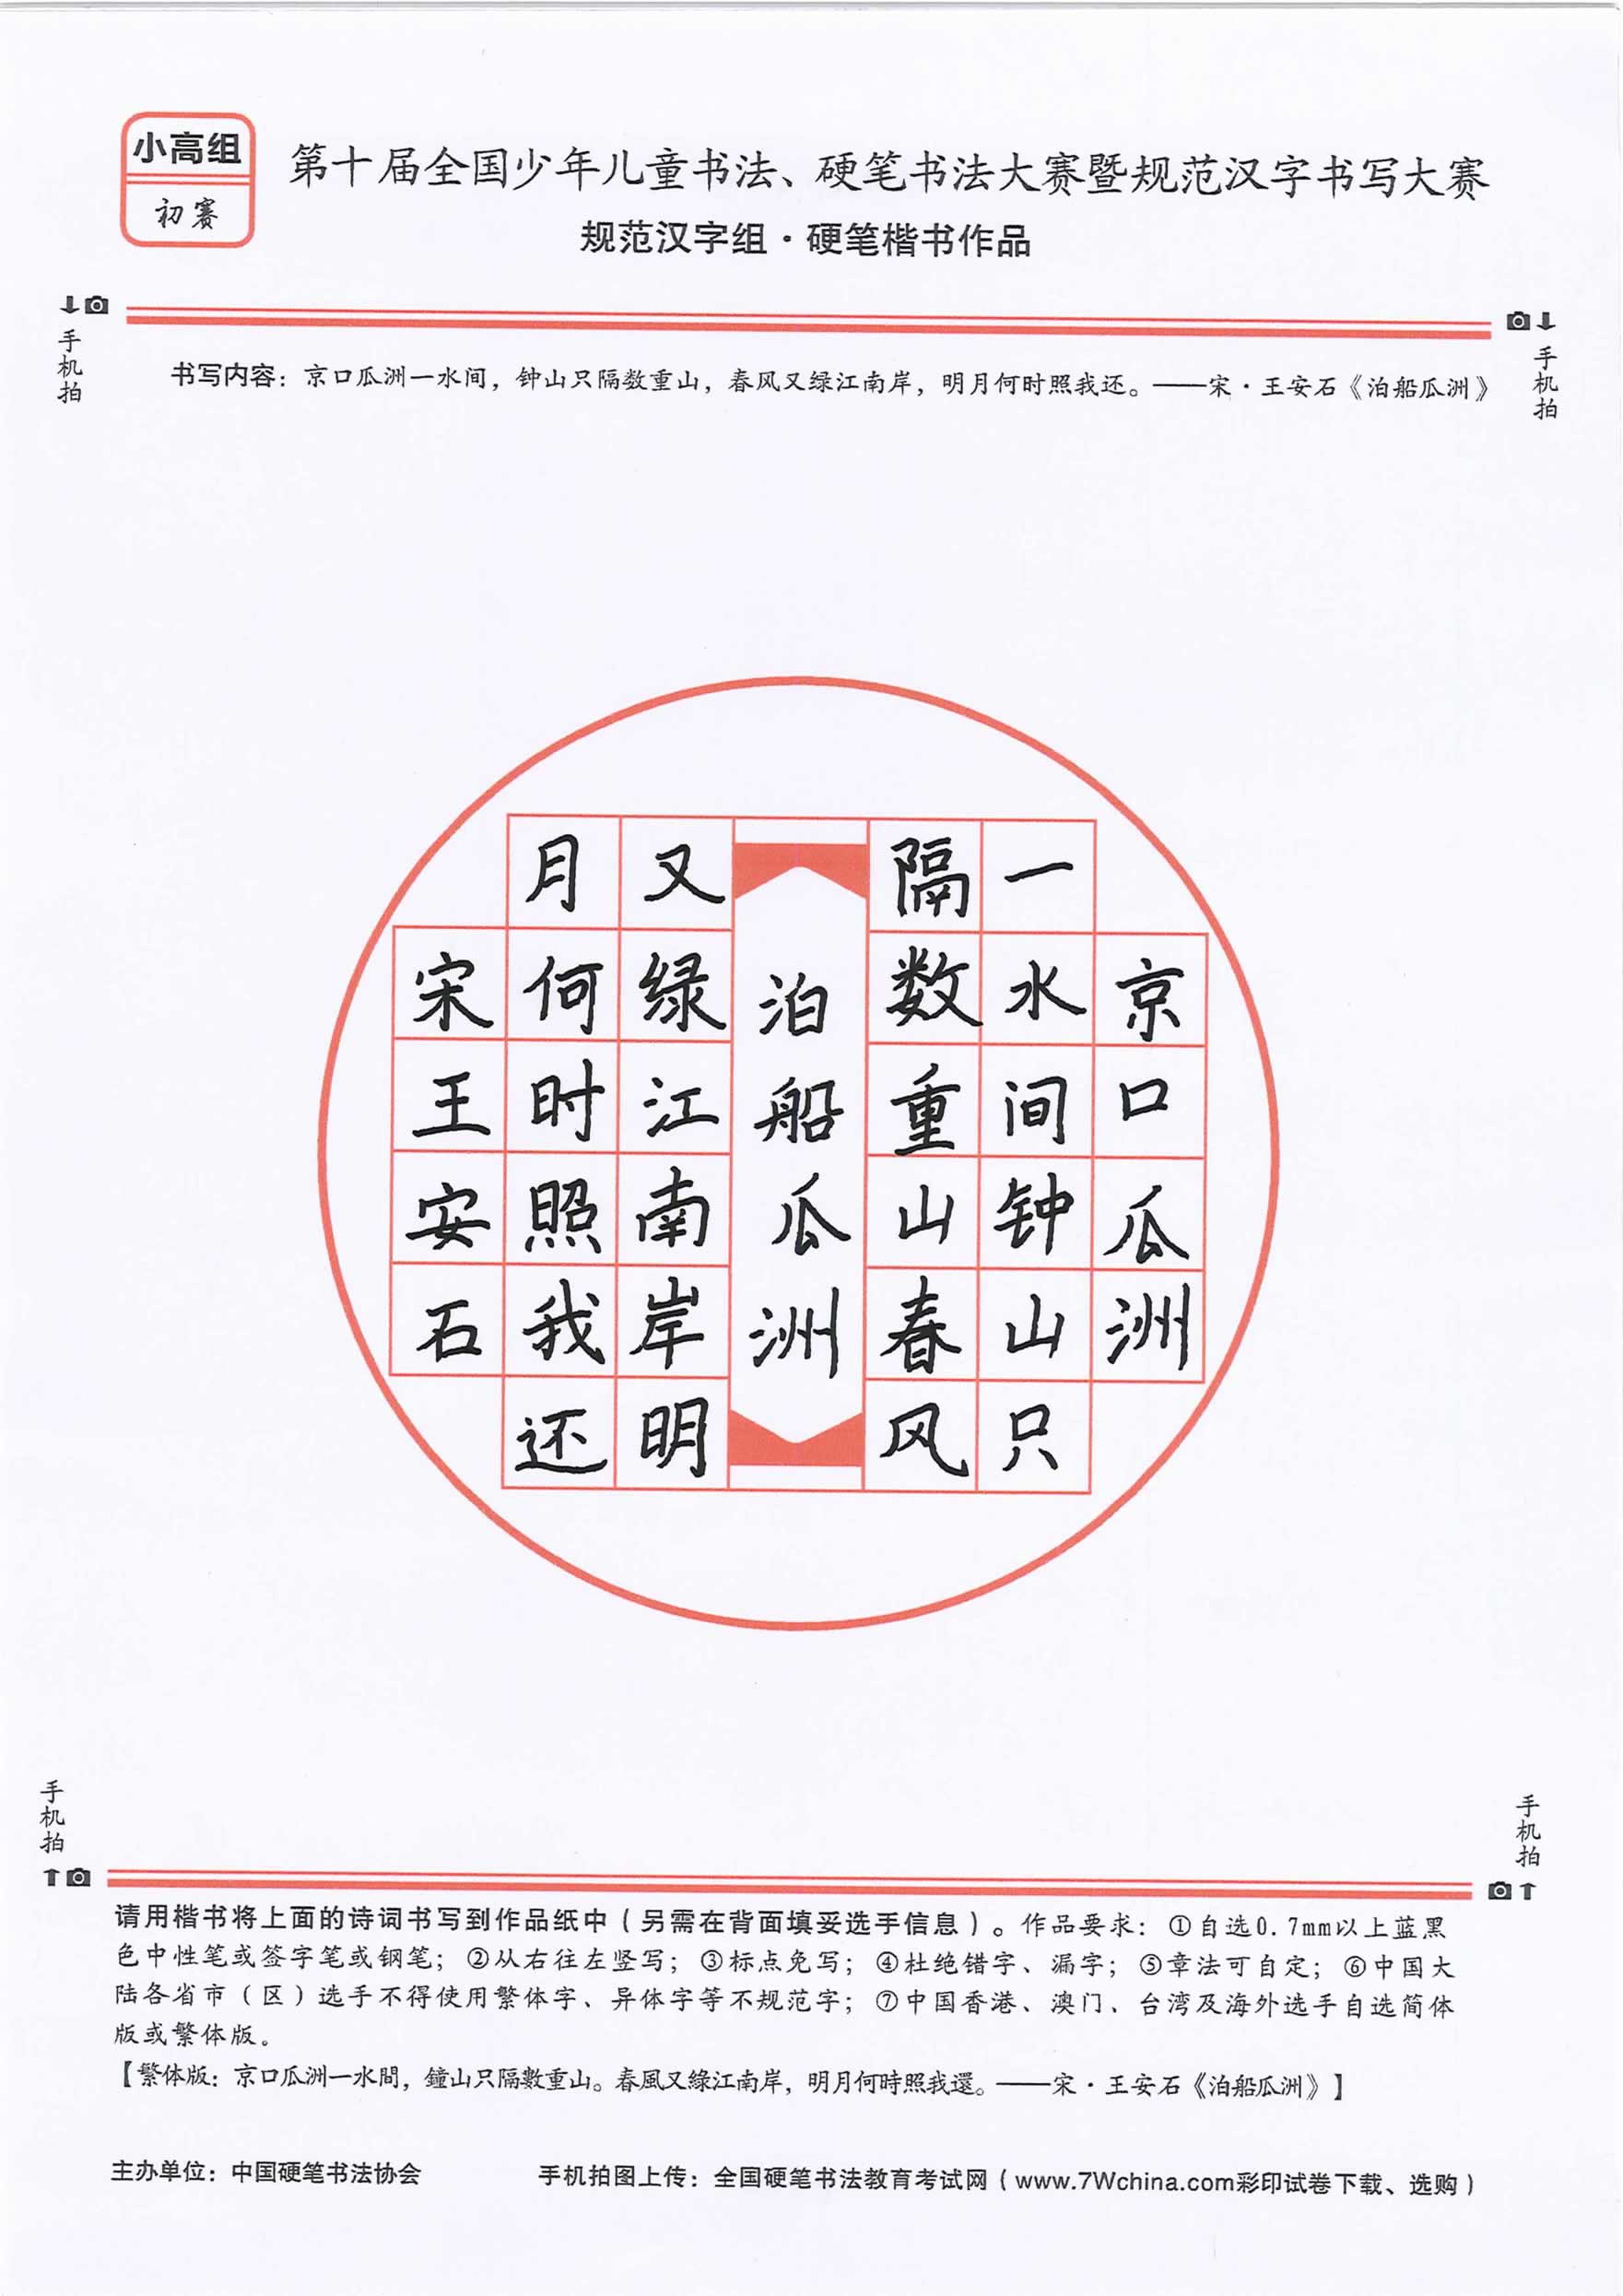 小高组
初赛
第十届全国少年儿童书法、硬笔书法大赛暨规范汉字书写大赛
规范汉字组·硬笔楷书作品
手机拍
手机拍
书写内容：京口瓜洲一水间，钟山只隔数重山，春风又绿江南岸，明月何时照我还。——宋·王安石《泊船瓜洲》
京口瓜洲
一水间钟山只
隔数重山春风
泊船瓜洲
又绿江南岸明
月何时照我还
宋王安石
手机拍
手机拍
请用楷书将上面的诗词书写到作品纸中（另需在背面填妥选手信息）。作品要求：①自选0.7mm以上蓝黑
色中性笔或签字笔或钢笔；②从右往左竖写；③标点免写；④杜绝错字、漏字；⑤章法可自定；⑥中国大
陆各省市（区）选手不得使用繁体字、异体字等不规范字；⑦中国香港、澳门、台湾及海外选手自选简体
版或繁体版。
【繁体版：京口瓜洲一水間，鐘山只隔數重山。春風又綠江南岸，明月何時照我還。——宋·王安石《泊船瓜洲》】
主办单位：中国硬笔书法协会
手机拍图上传：全国硬笔书法教育考试网（www.7Wchina.com彩印试卷下载、选购）